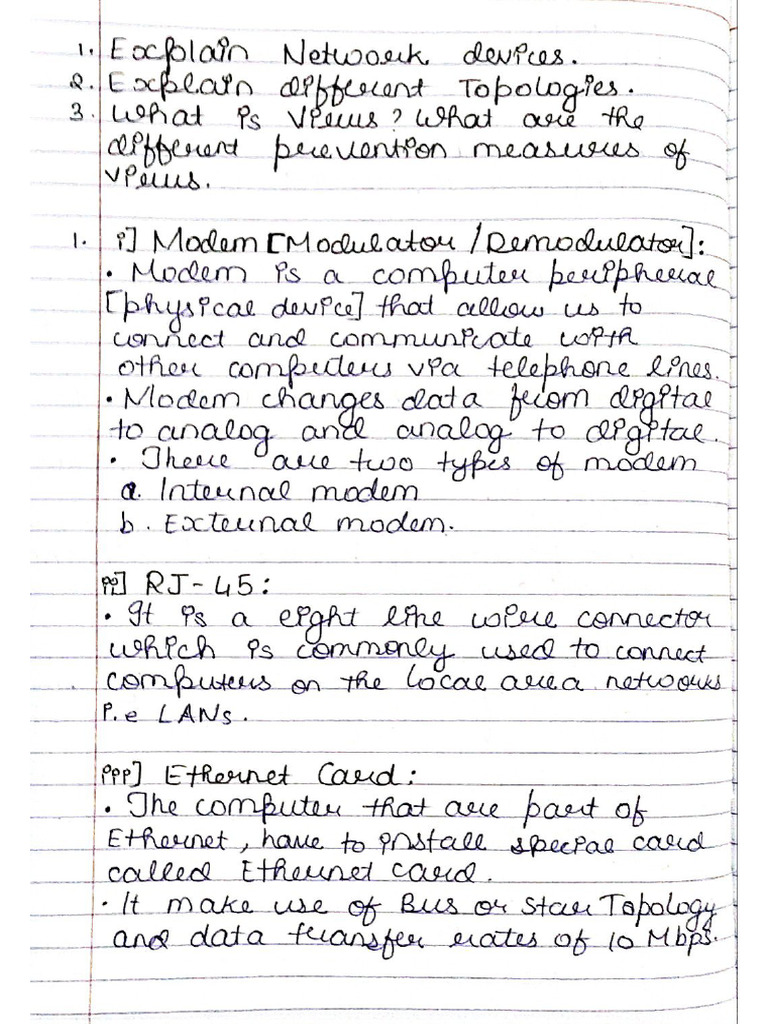 1. Explain Network devices.
2. Explain different Topologies.
3. What is virus? What are the
different prevention measures of
virus.
1. i] Modem [Modulator / Demodulator]:
• Modem is a computer peripheral
[physical device] that allow us to
connect and communicate with
other computers via telephone lines.
• Modem changes data from digital
to analog and analog to digital.
• There are two types of modem
a. Internal modem
b. External modem.
ii] RJ-45:
• It is a eight line wire connector
which is commonly used to connect
computers on the local area networks
i.e LANs.
iii] Ethernet Card:
• The computer that are part of
Ethernet, have to install special card
called Ethernet card.
• It make use of Bus or Star Topology
and data transfer rates of 10 Mbps.